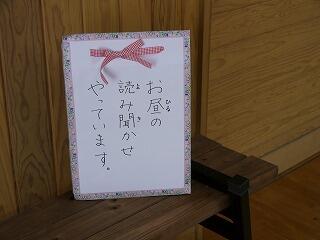 お昼の
読み聞かせ
やっています。